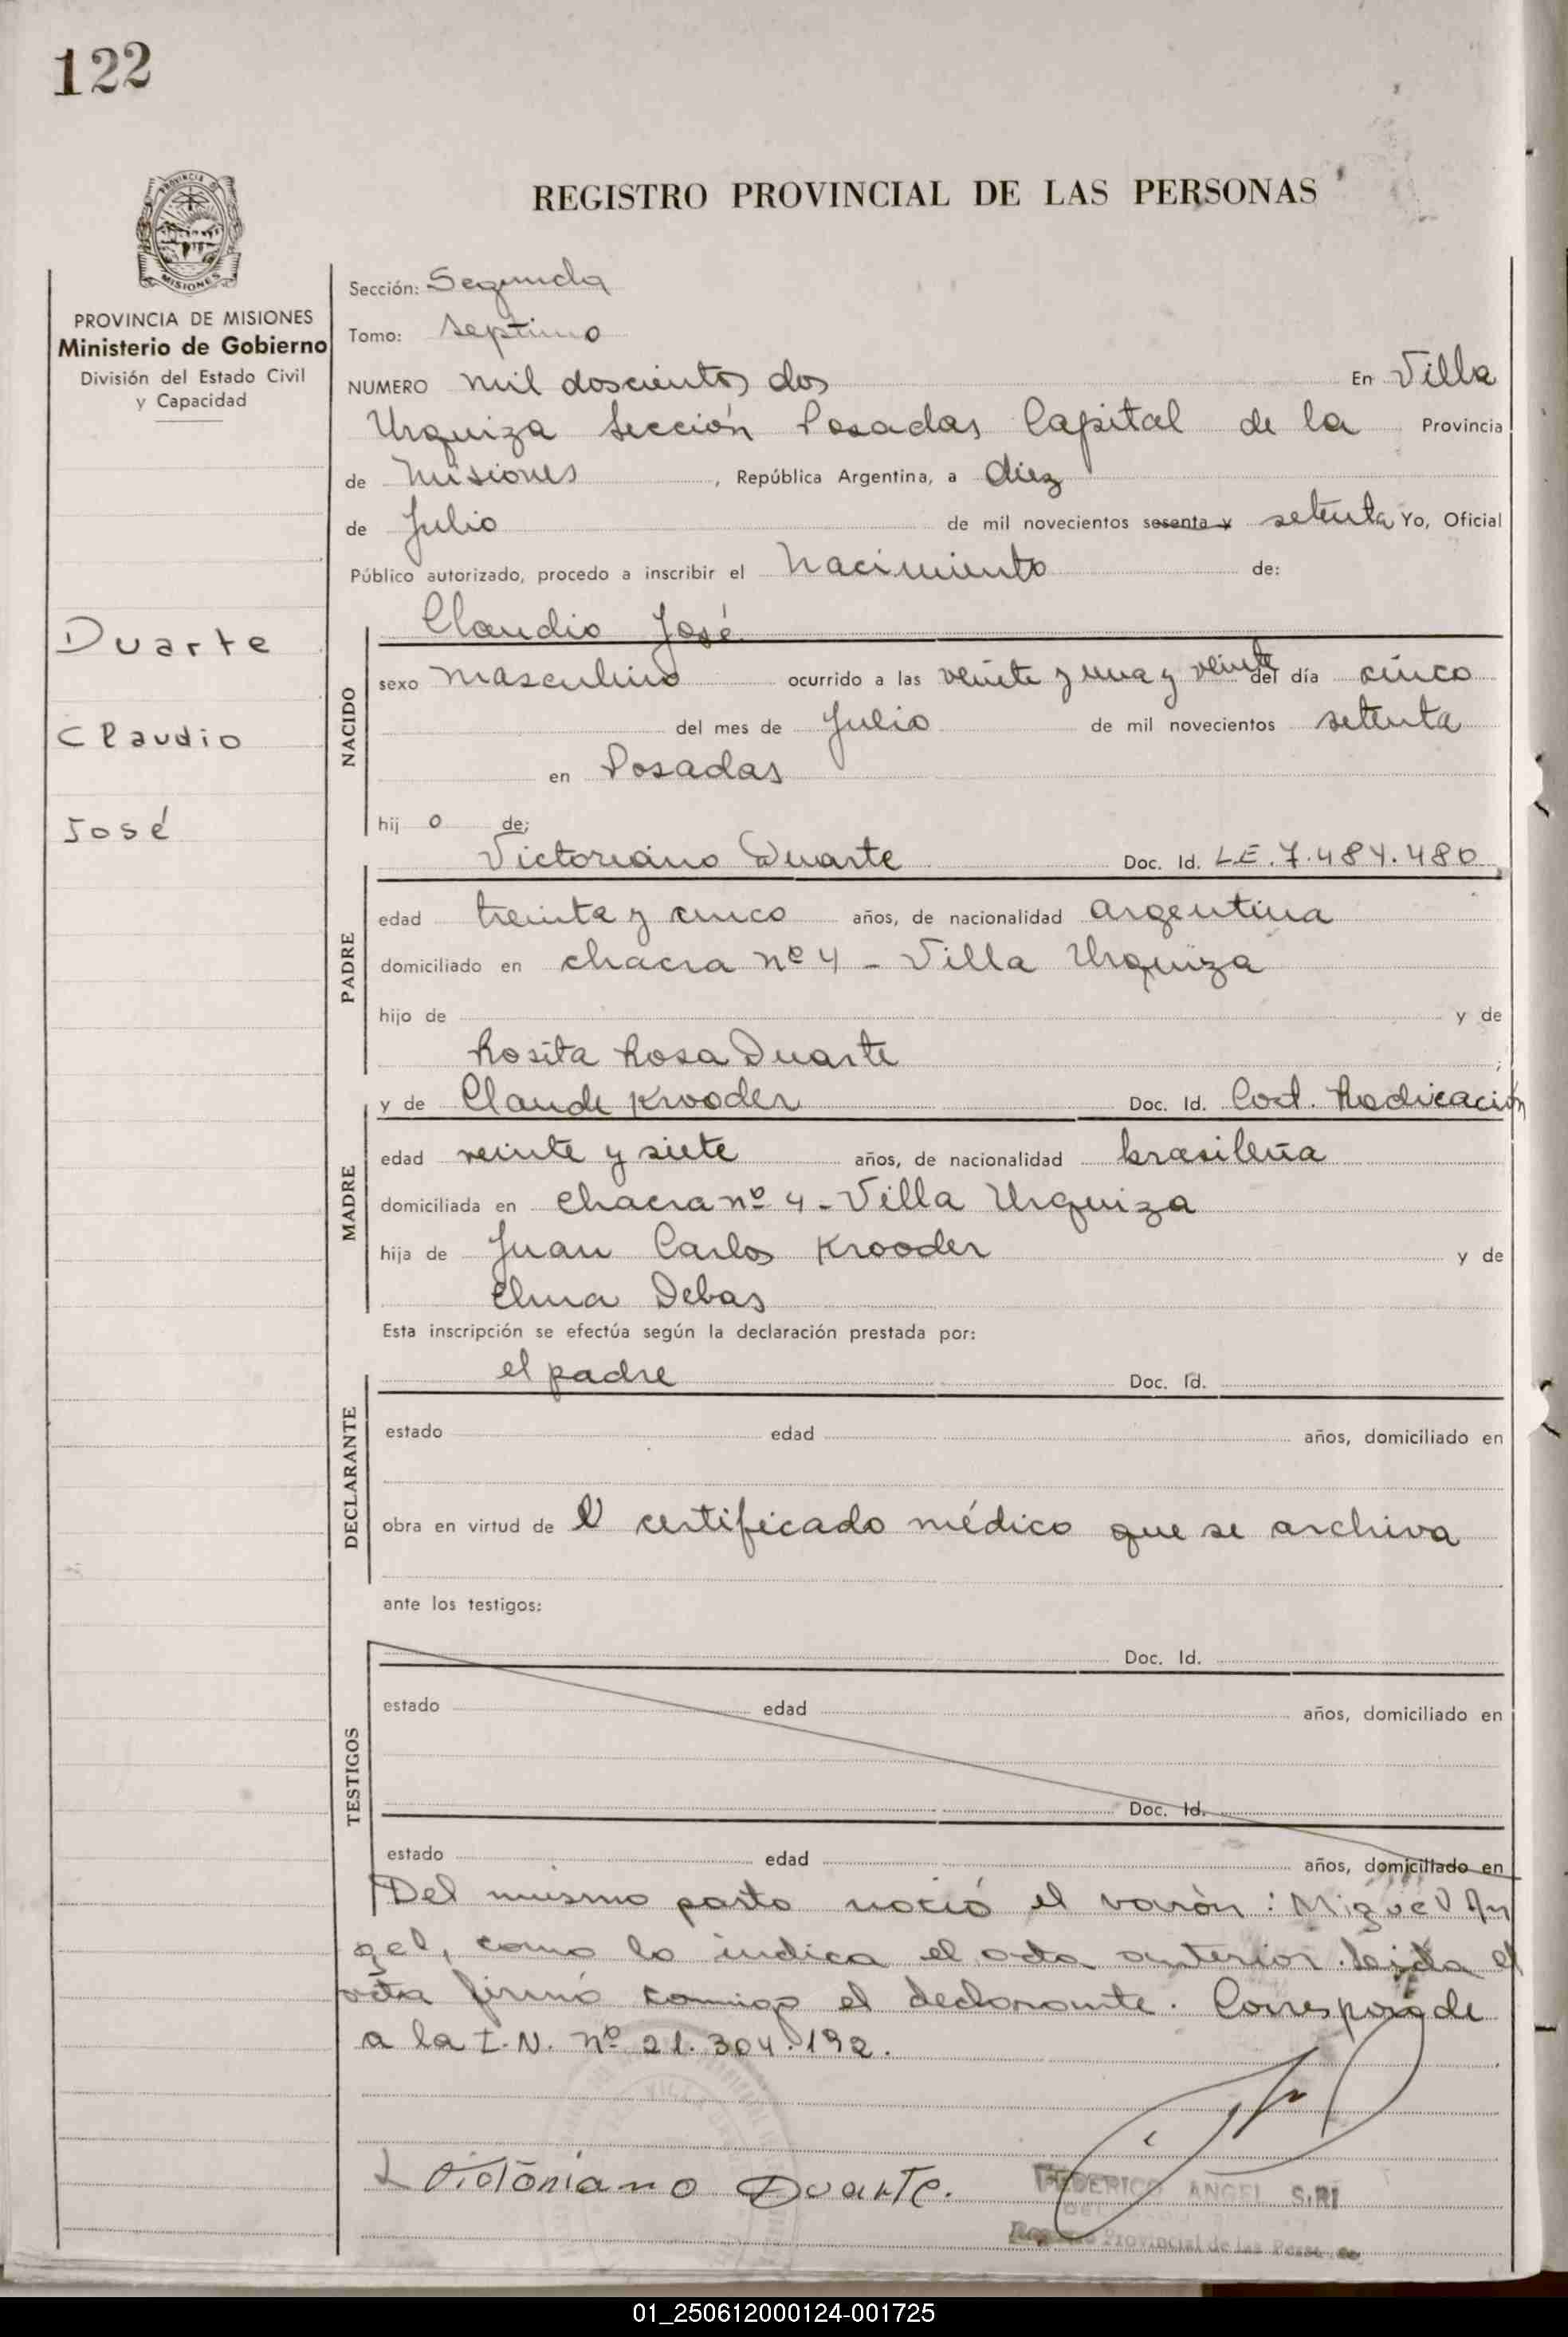 122
REGISTRO PROVINCIAL DE LAS PERSONAS
PROVINCIA DE MISIONES
Ministerio de Gobierno
División del Estado Civil
y Capacidad
Duarte
Claudio
José
Sección: Segunda
Tomo: septimo
NUMERO mil doscientos dos En Villa
Urquiza Sección Posadas Capital de la Provincia
de Misiones, República Argentina, a diez
de Julio de mil novecientos sesenta y setenta Yo, Oficial
Público autorizado, procedo a inscribir el Nacimiento de:
Claudio José
NACIDO
sexo masculino ocurrido a las veinte y una y veinte del día cinco
del mes de Julio de mil novecientos setenta
en Posadas
hij o de:
Victoriano Duarte Doc. Id. L.E. 7.484.480
PADRE
edad treinta y cinco años, de nacionalidad argentina
domiciliado en chacra nº 4 - Villa Urquiza
hijo de y de
Rosita Rosa Duarte
y de Claude Krooder Doc. Id. Cert. Radicación
MADRE
edad veinte y siete años, de nacionalidad brasileña
domiciliada en chacra nº 4 - Villa Urquiza
hija de Juan Carlos Krooder y de
Elma Debas
Esta inscripción se efectúa según la declaración prestada por:
el padre Doc. Id.
DECLARANTE
estado edad años, domiciliado en
obra en virtud de l certificado médico que se archiva
ante los testigos:
Doc. Id.
TESTIGOS
estado edad años, domiciliado en
Doc. Id.
estado edad años, domiciliado en
Del mismo parto nació el varón: Miguel An
gel, como lo indica el acta anterior. Leída el
acta firmó conmigo el declarante. Corresponde
a la I.N. nº 21.304.192.
Victoriano Duarte.
FEDERICO ANGEL
Provincial de las
01_250612000124-001725